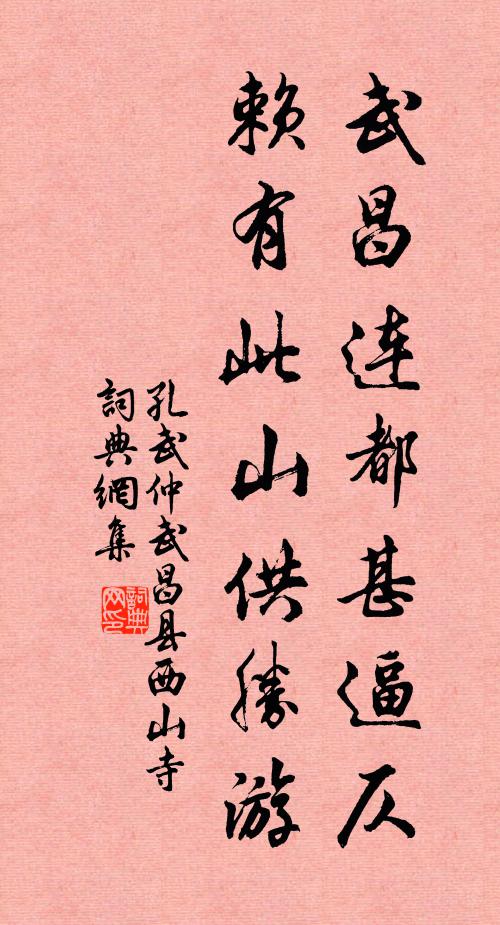 武昌连都甚逼仄
赖有此山供胜游
孔武仲武昌县西山寺
詞典網集
詞典
网印